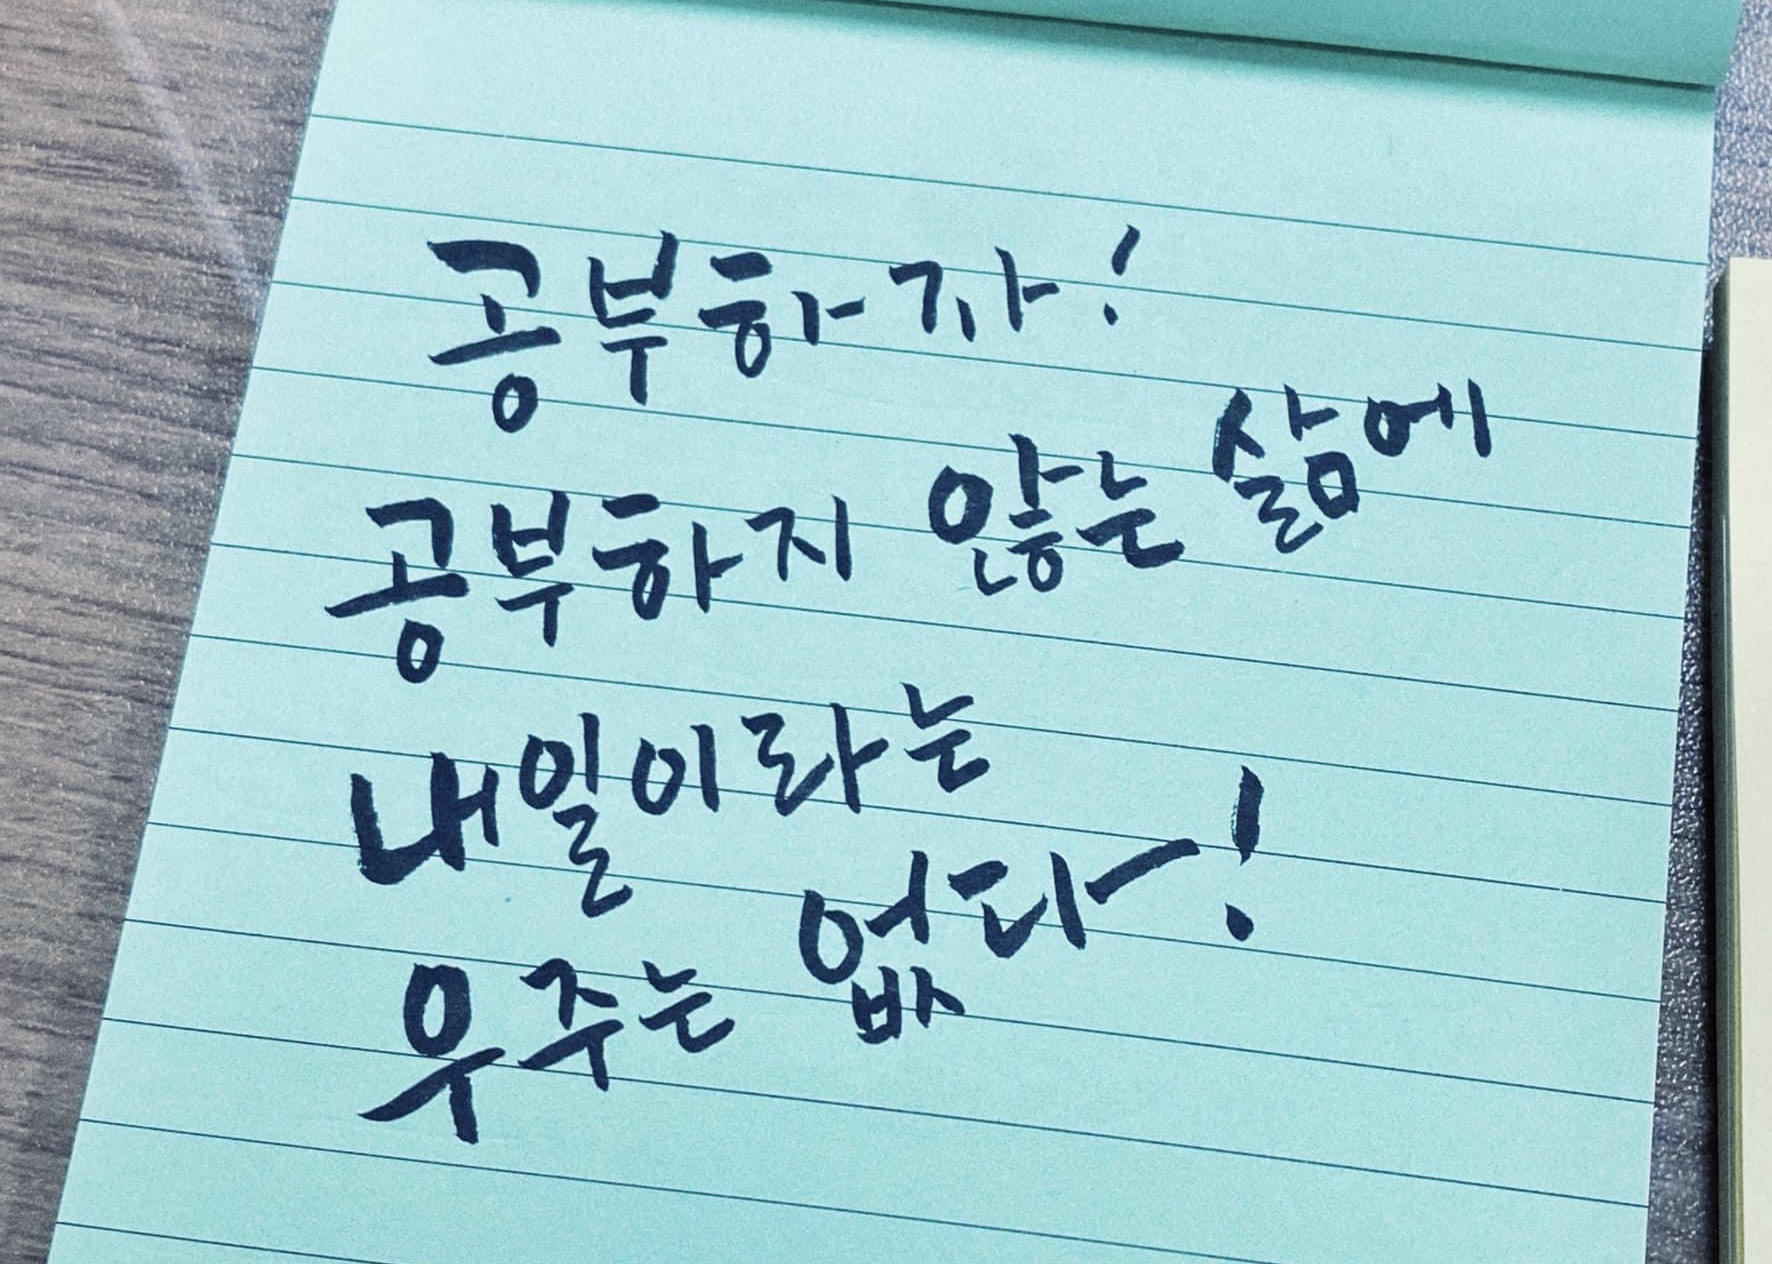 공부하자!
공부하지 않는 삶에
내일이라는
우주는 없다!